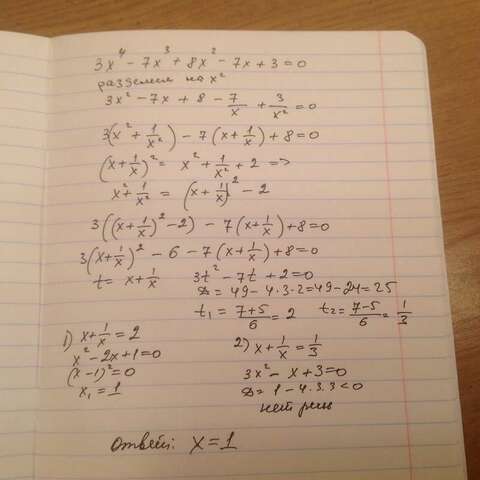 3x⁴ - 7x³ + 8x² - 7x + 3 = 0
разделим на x²
3x² - 7x + 8 - 7/x + 3/x² = 0
3(x² + 1/x²) - 7(x + 1/x) + 8 = 0
(x + 1/x)² = x² + 1/x² + 2 =>
x² + 1/x² = (x + 1/x)² - 2
3((x + 1/x)² - 2) - 7(x + 1/x) + 8 = 0
3(x + 1/x)² - 6 - 7(x + 1/x) + 8 = 0
t = x + 1/x 3t² - 7t + 2 = 0
D = 49 - 4·3·2 = 49 - 24 = 25
t₁ = (7+5)/6 = 2 t₂ = (7-5)/6 = 1/3
1) x + 1/x = 2
x² - 2x + 1 = 0
(x - 1)² = 0
x₁ = 1
2) x + 1/x = 1/3
3x² - x + 3 = 0
D = 1 - 4·3·3 < 0
нет реш
Ответ: x = 1